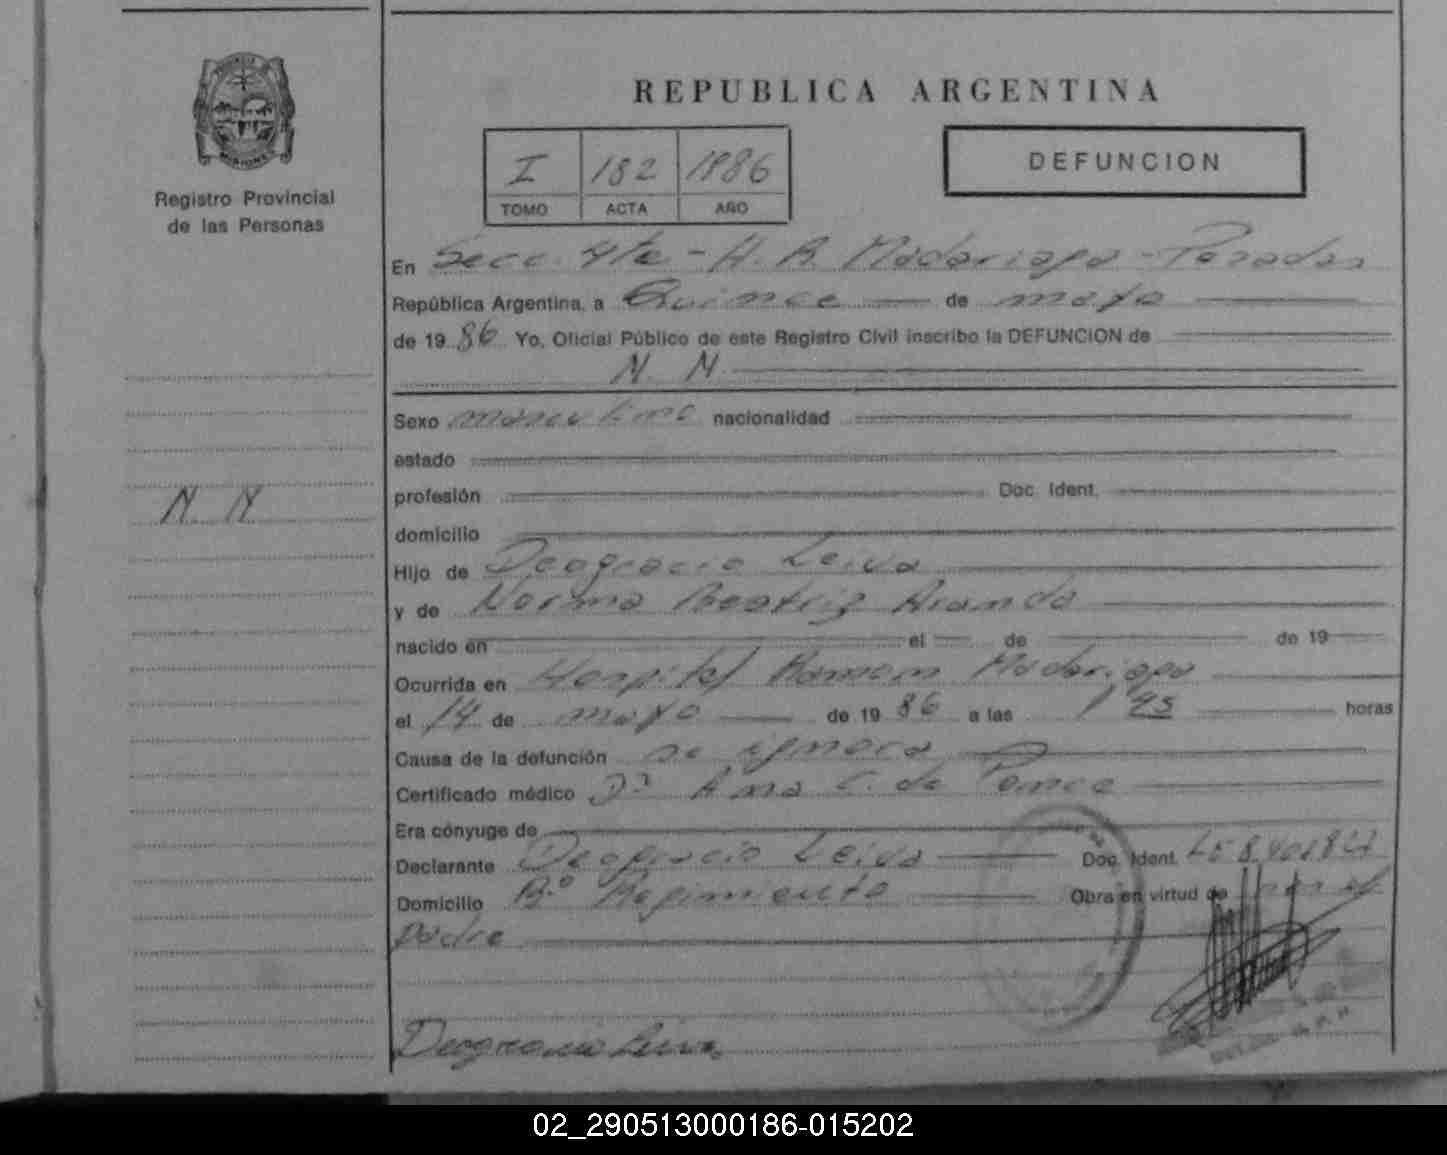 REPUBLICA ARGENTINA
I 182 1986
TOMO ACTA AÑO
DEFUNCION
MISIONES
Registro Provincial
de las Personas
En Secc. 4ta - H. R. Madariaga - Posadas
República Argentina, a Quince de mayo
de 19 86 Yo, Oficial Público de este Registro Civil inscribo la DEFUNCION de
N N
Sexo masculino nacionalidad
estado
N N
profesión Doc. Ident.
domicilio
Hijo de Deogracio Leiva
y de Norma Beatriz Aranda
nacido en el de de 19
Ocurrida en Hospital Ramon Madariaga
el 14 de mayo de 19 86 a las horas
Causa de la defunción se ignora
Certificado médico Dra Ana C. de Ponce
Era cónyuge de
Declarante Deogracio Leiva Doc. Ident.
Domicilio Bº Regimiento Obra en virtud de
padre
Deogracio Leiva
02_290513000186-015202